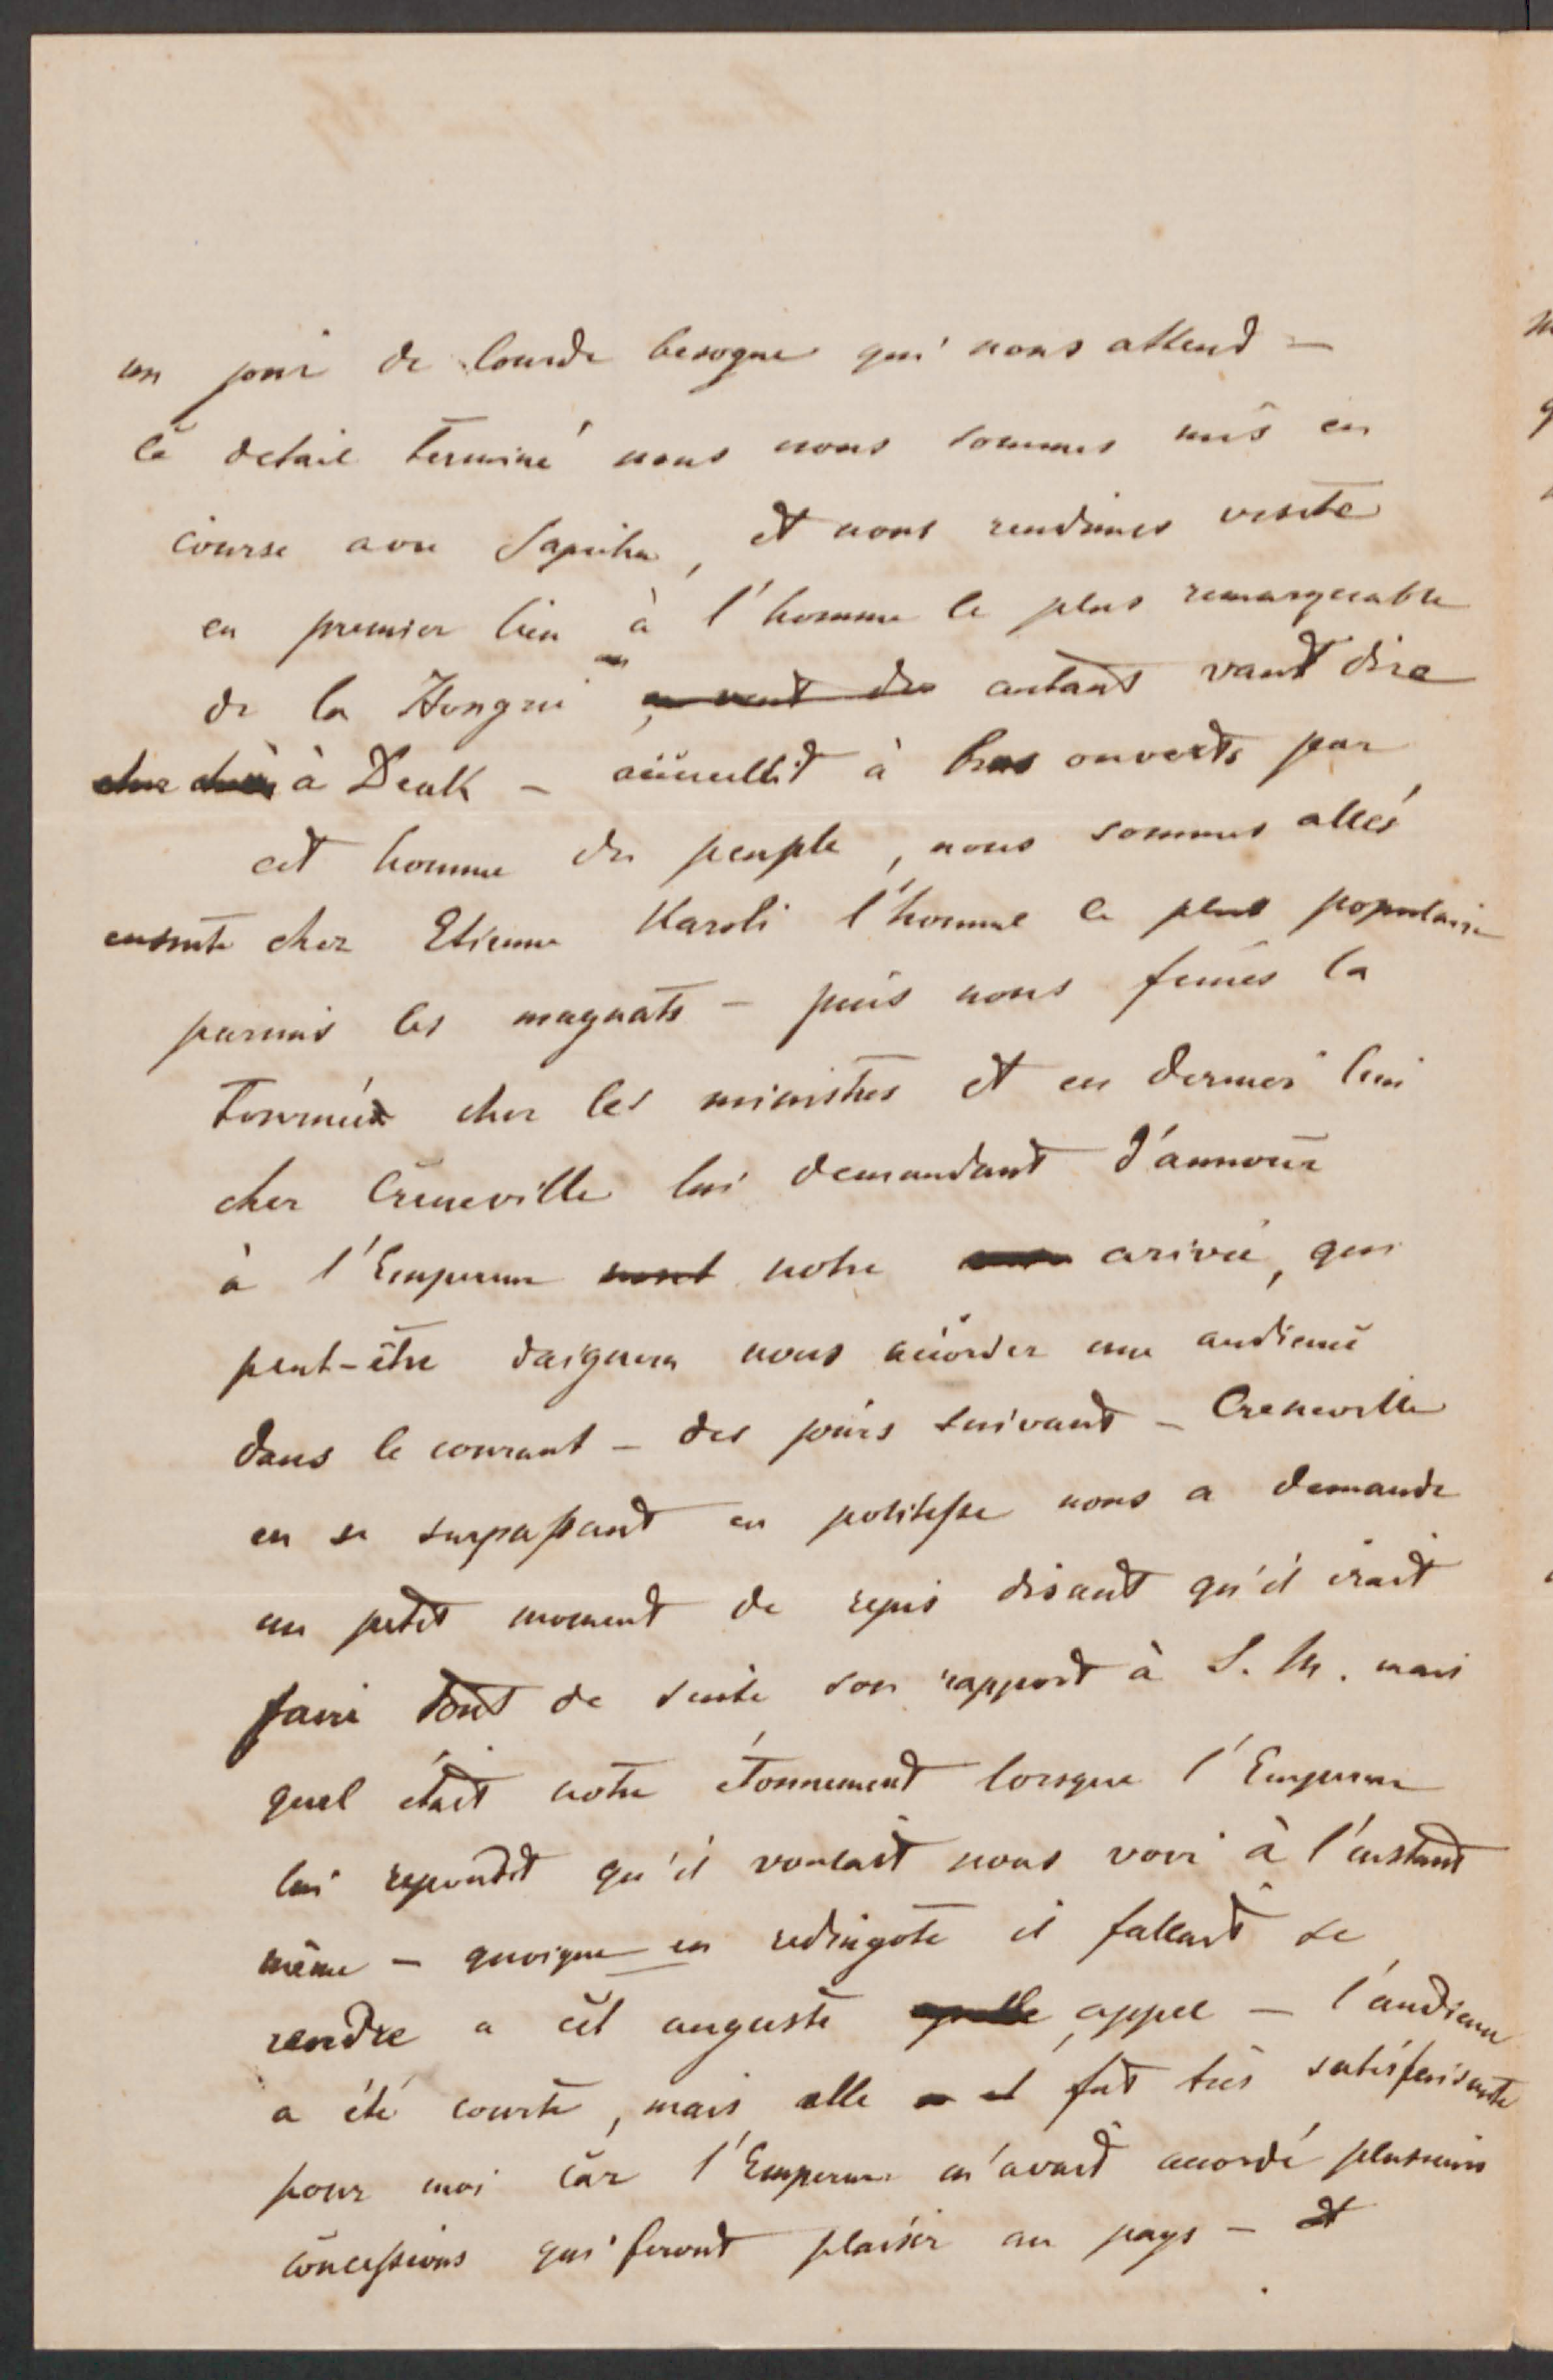 un jour de lourde besogne qui nous attend —
ce detail terminé nous nous sommes mis en
course avec Sapieha, et nous rendimes visite
en premier lieu à l'homme le plus remarquable
de la Hongrie, autant vaut dire
à Deak — accueillit à bras ouverts par
cet homme du peuple, nous sommes allés
ensuite chez Etienne Karoli l'homme le plus populaire
parmis les magnats — puis nous fimes la
tournée chez les ministres et en dernier lieu
chez Creneville lui demandant d'annoncer
à l'Empereur notre arivée, qui
peut-être daignera nous accorder une audience
dans le courant — des jours suivant — Creneville
en se surpassant en politesse nous a demande
un petit moment de repis disant qu'il irait
faire tout de suite son rapport à S. M. mais
quel était notre étonnement lorsque l'Empereur
lui repondit qu'il voulait nous voir à l'instant
même — quoique en redingote il fallait se
rendre a cet auguste appel — l'audience
a été courte, mais elle fut très satisfaisante
pour moi car l'Empereur m'avait accordé plusieurs
concessions qui feront plaisir au pays — et